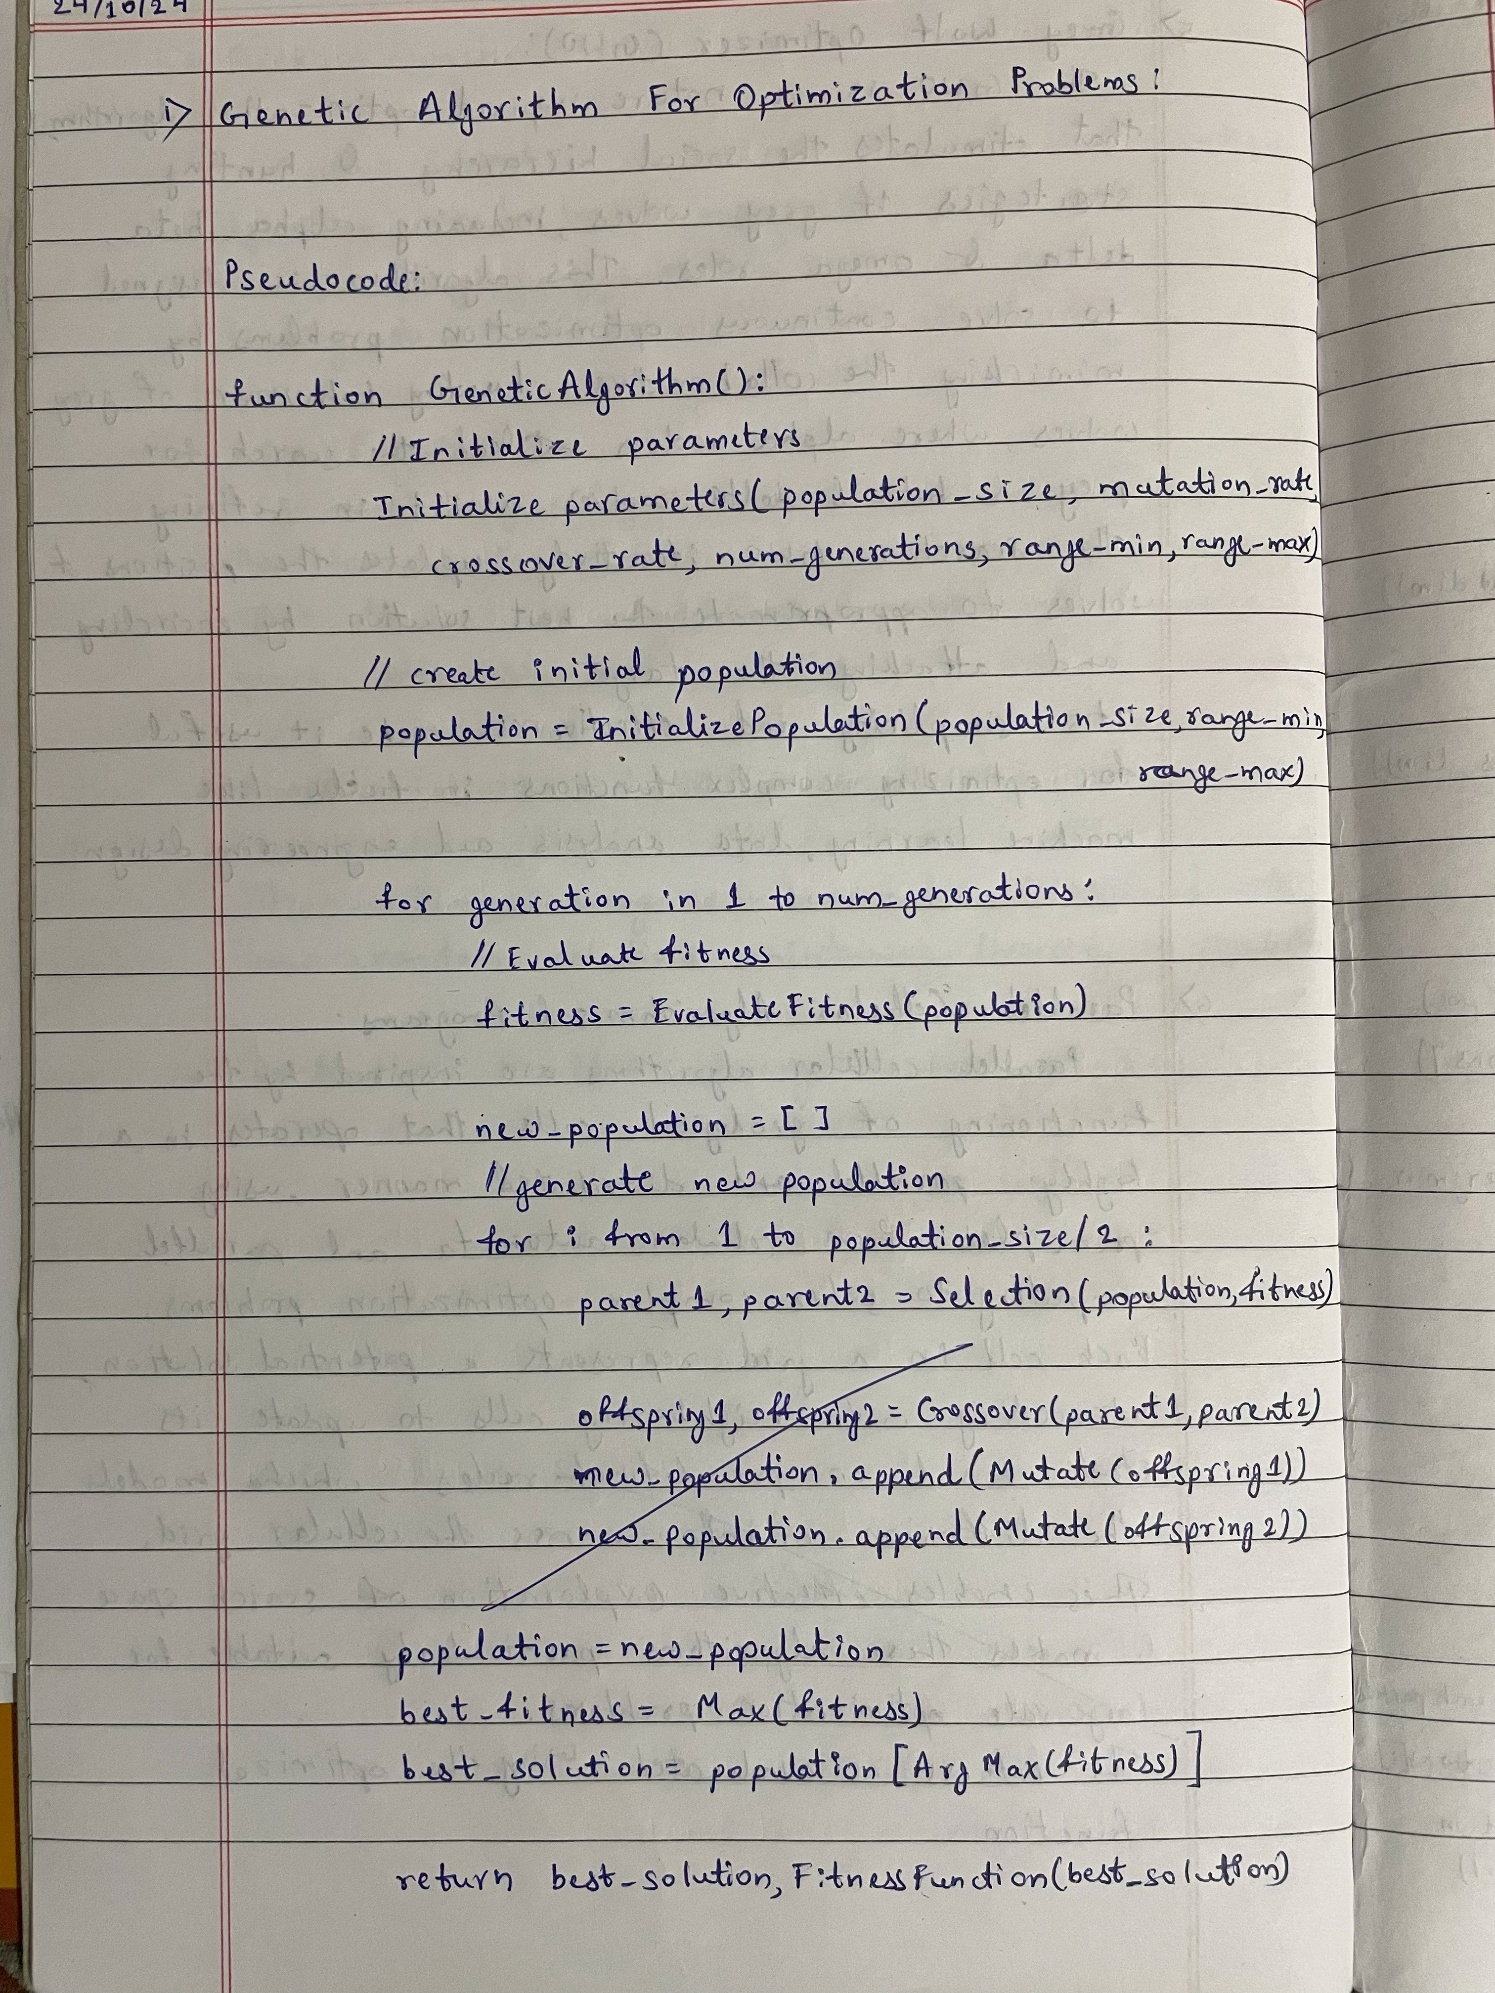 24/10/24
i> Genetic Algorithm For Optimization Problems:
Pseudocode:
function GeneticAlgorithm():
// Initialize parameters
Initialize parameters( population_size, mutation_rate,
crossover_rate, num_generations, range_min, range_max)
// create initial population
population = InitializePopulation (population_size, range_min,
range_max)
for generation in 1 to num_generations:
// Evaluate fitness
fitness = EvaluateFitness (population)
new_population = [ ]
// generate new population
for i from 1 to population_size/2 :
parent1, parent2 = Selection (population, fitness)
offspring1, offspring2 = Crossover (parent1, parent2)
new_population. append (Mutate (offspring1))
new_population. append (Mutate (offspring2))
population = new_population
best_fitness = Max( fitness)
best_solution = population [Arg Max (fitness)]
return best_solution, FitnessFunction (best_solution)